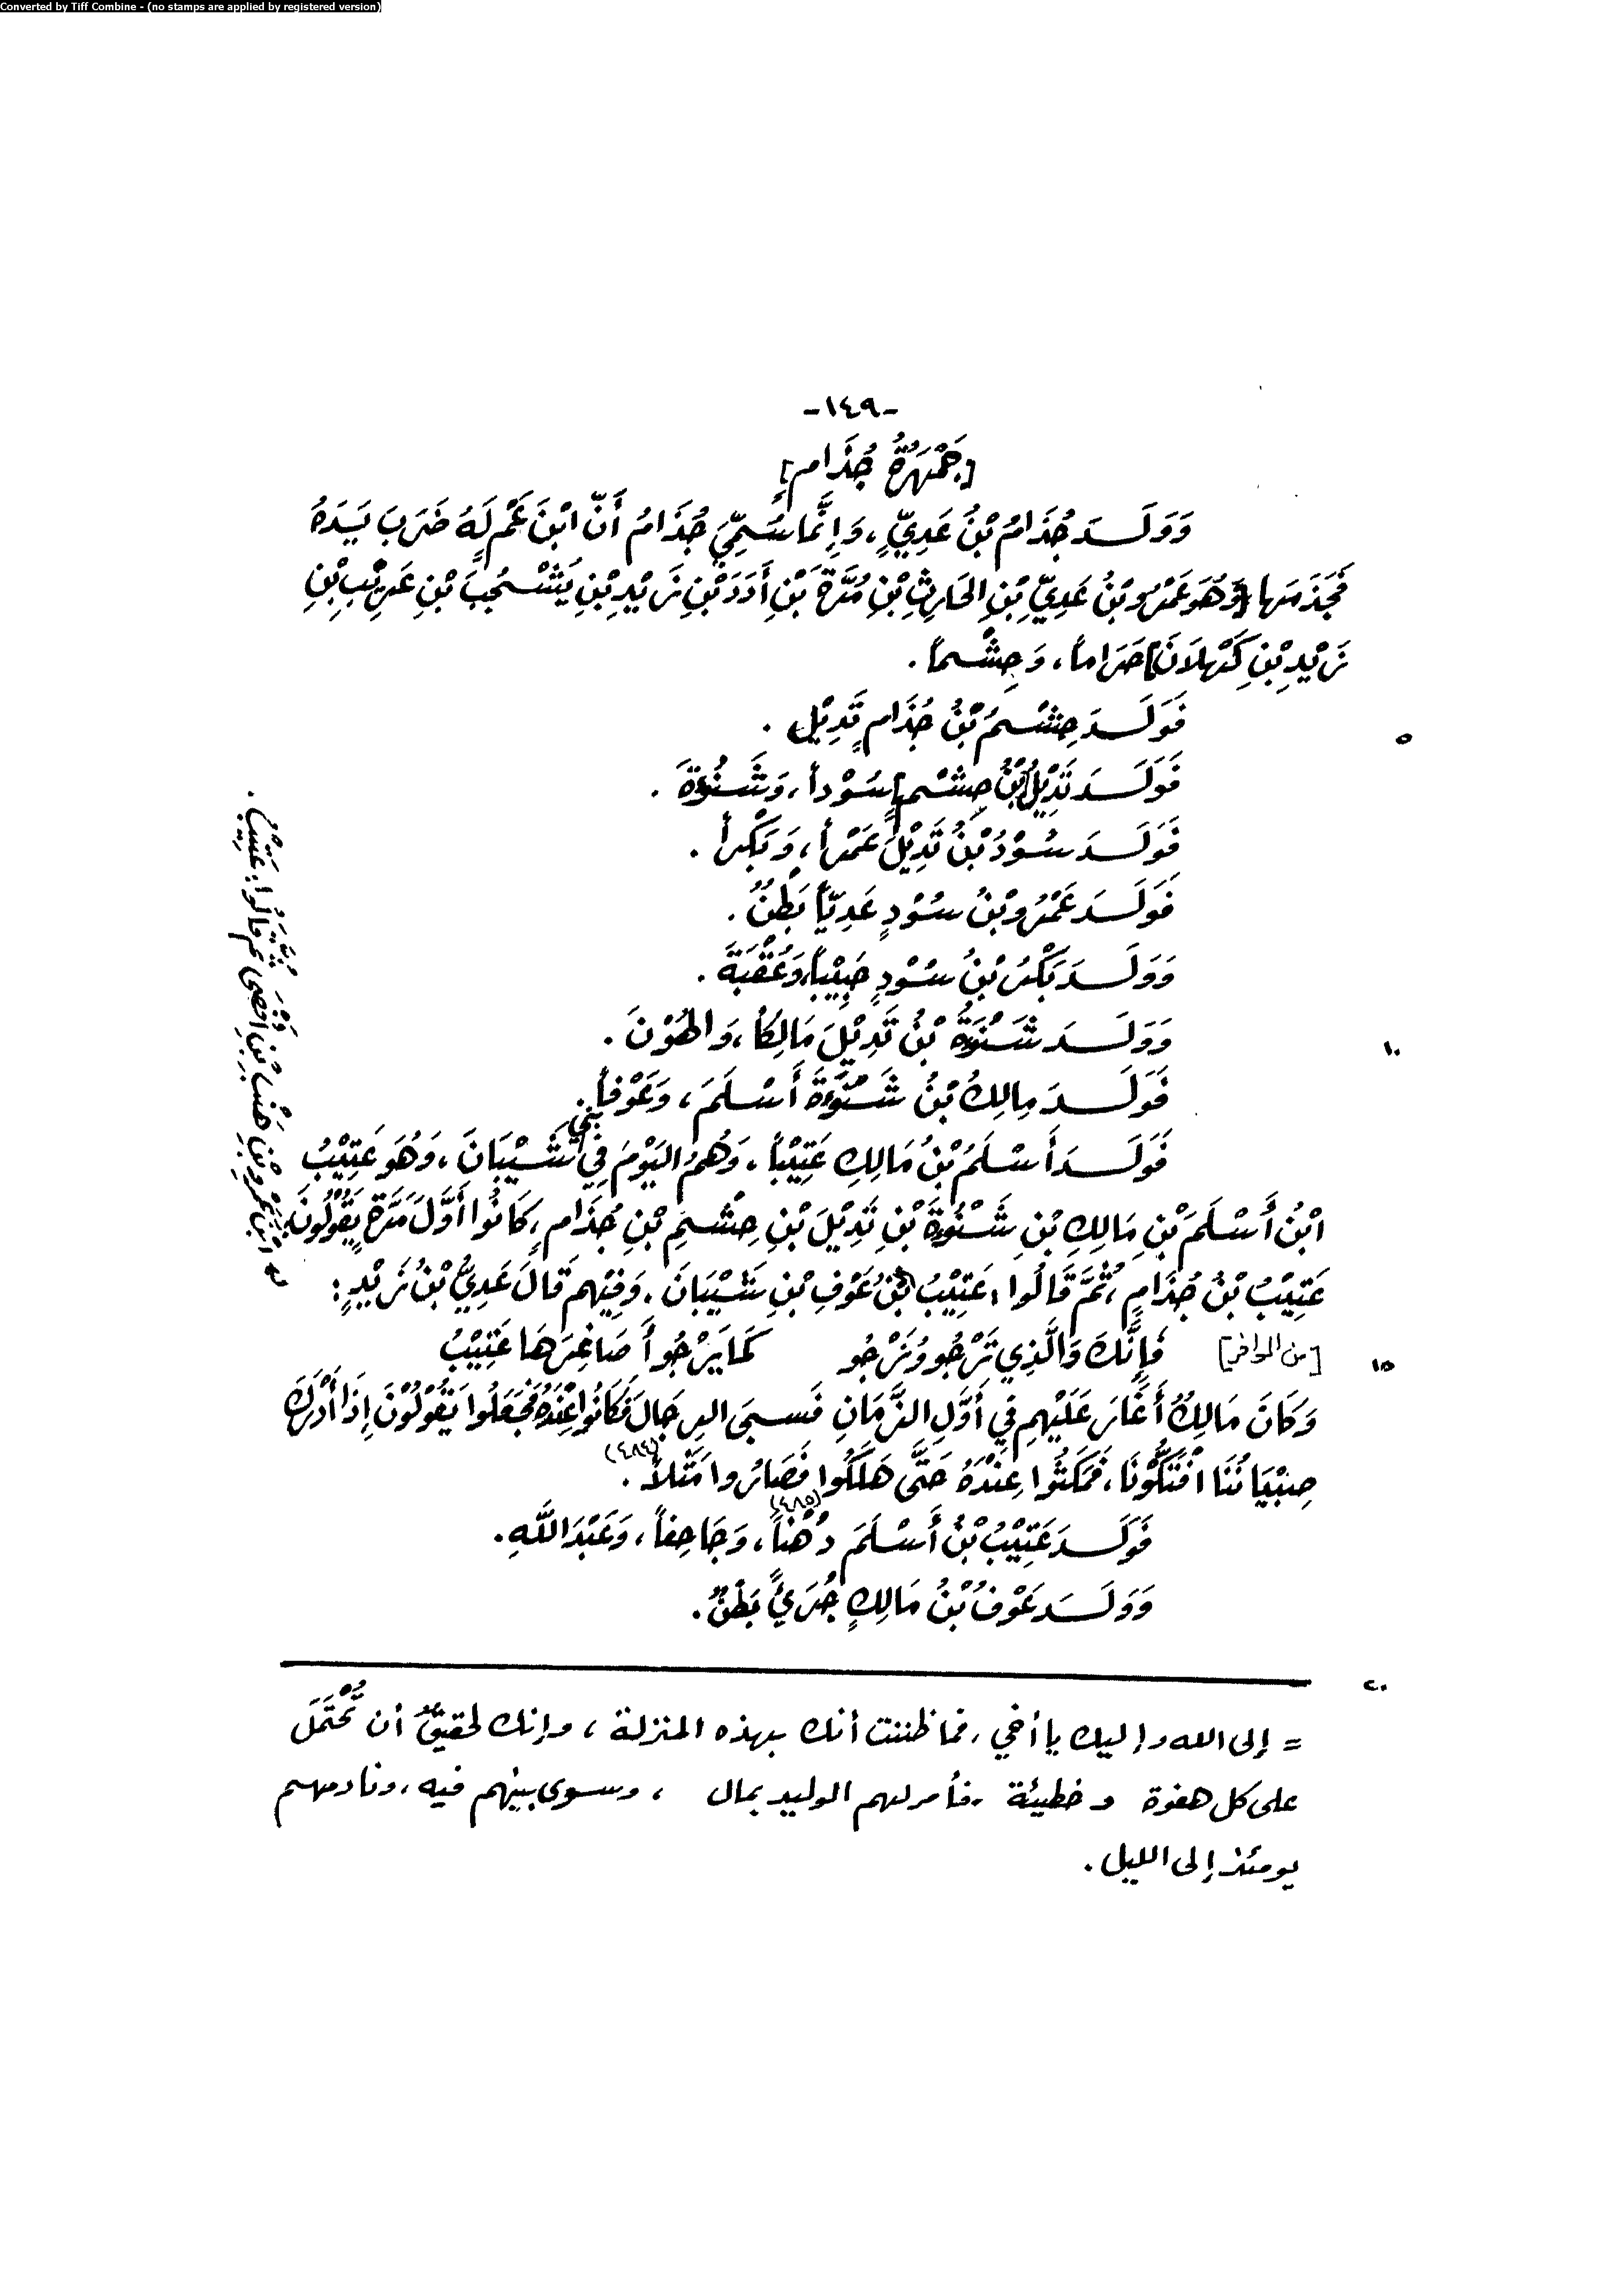 Converted by Tiff Combine - (no stamps are applied by registered version)
-١٤٩-
[جَمْهَرَةُ جُذَام]
وَوَلَـدَ جُذَامُ بْنُ عَدِيٍّ، وَإِنَّمَا سُمِّيَ جُذَامُ أَنَّ ابْنَ عَمٍّ لَهُ ضَرَبَ يَدَهُ
فَجَذَمَهَا [وَهُوَ عَمْرُو بْنُ عَدِيِّ بْنِ الحَارِثِ بْنِ مُرَّةَ بْنِ أُدَدَ بْنِ زَيْدِ بْنِ يَشْجُبَ بْنِ عَرِيْبِ بْنِ
زَيْدِ بْنِ كَهْلَانَ] حَرَاماً، وَحِشْماً.
فَوَلَـدَ حِشْمُ بْنُ جُذَامٍ تَدِيْلَ.
٥
فَوَلَـدَ تَدِيْلُ [بْنُ حِشْمٍ] سُوْداً، وَشَنُوْءَةَ.
فَوَلَـدَ سُوْدُ بْنُ تَدِيْلَ عَمْراً، وَبَكْراً.
فَوَلَـدَ عَمْرُو بْنُ سُوْدٍ عَدِيّاً بَطْنٌ.
وَوَلَـدَ بَكْرُ بْنُ سُوْدٍ حَبِيْباً، وَعُقْبَةَ.
وَوَلَـدَ شَنُوْءَةُ بْنُ تَدِيْلَ مَالِكاً، وَالهُوْنَ.
١٠
فَوَلَـدَ مَالِكُ بْنُ شَنُوْءَةَ أَسْلَمَ، وَعَوْفاً.
فَوَلَـدَ أَسْلَمُ بْنُ مَالِكِ عَتِيْباً، وَهُمُ اليَوْمَ فِي بَنِي شَيْبَانَ، وَهُوَ عَتِيْبُ
ابْنُ أَسْلَمَ بْنِ مَالِكِ بْنِ شَنُوْءَةَ بْنِ تَدِيْلَ بْنِ حِشْمِ بْنِ جُذَامٍ، كَانُوا أَوَّلَ مَرَّةٍ يَقُوْلُونَ:
عَتِيْبُ بْنُ جُذَامٍ، ثُمَّ قَالُوا: عَتِيْبُ بْنُ عَوْفِ بْنِ شَيْبَانَ. وَفِيْهِم قَالَ عَدِيُّ بْنُ زَيْدٍ:
[من الوافر] فَإِنَّكَ وَالَّذِي تَرْجُو وَنَرْجُو كَمَا يَرْجُو أَصَاغِرَهَا عَتِيْبُ
١٥
وَكَانَ مَالِكُ أَغَارَ عَلَيْهِم فِي أَوَّلِ الزَّمَانِ فَسَبَى الرِجَالَ فَكَانُوا عِنْدَهُ فَجَعَلُوا يَقُوْلُوْنَ إِذَا أَدْرَكَ
صِبْيَانُنَا افْتَكُّوْنَا، فَمَكَثُوا عِنْدَهُ حَتَّى هَلَكُوا فَصَارُوا مَثَلاً. (٤٨٤)
فَوَلَـدَ عَتِيْبُ بْنُ أَسْلَمَ دُهْناً، (٤٨٥) وَجَاحِفاً، وَعَبْدَ اللَّهِ.
وَوَلَـدَ عَوْفُ بْنُ مَالِكٍ جُرَيَّ بَطْنٌ.
٢٠
= إلى الله وإليك يا أخي، فما ظننت أنك بهذه المنزلة، وإنك لحقيقٌ أن تُحْتَمَلَ
على كل هفوة و خطيئة. فأمر لهم الوليد بمال ، وسوى بينهم فيه، ونادمهم
يومئذ إلى الليل.
ابْنِ عَمْرِو بْنِ هِنْبِ بْنِ أفْصَى ثُمَّ قَالُوا: عَتِيْبُ.